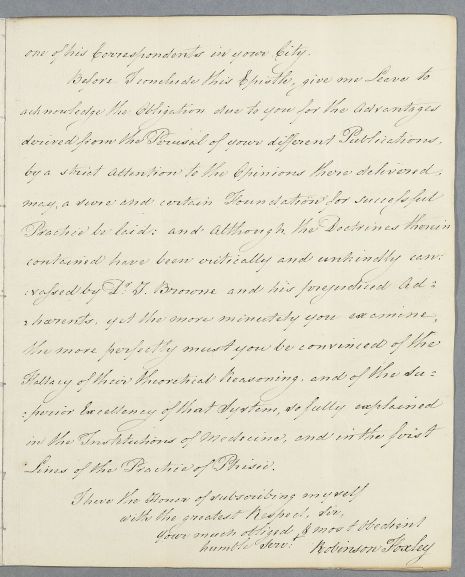 one of his Correspondents in your City.
Before I conclude this Epistle, give me leave to
acknowledge the Obligation due to you for the Advantages
derived from the Perusal of your different Publications,
by a strict attention to the Opinions there delivered,
may, a sure and certain Foundation for successful
Practice be laid: and although the Doctrines therein
contained have been critically and unkindly can:
:vassed by Dr. J. Browne and his prejudiced Ad=
=herents, yet the more minutely you examine,
the more perfectly must you be convinced of the
Fallacy of their theoretical Reasoning, and of the su=
=perior Excellency of that System, so fully explained
in the Institutions of Medicine, and in the first
Lines of the Practice of Phisic.
I have the Honor of subscribing myself
with the greatest Respect, Sir,
your much obliged & most obedient
humble Servt.
Robinson Foxley